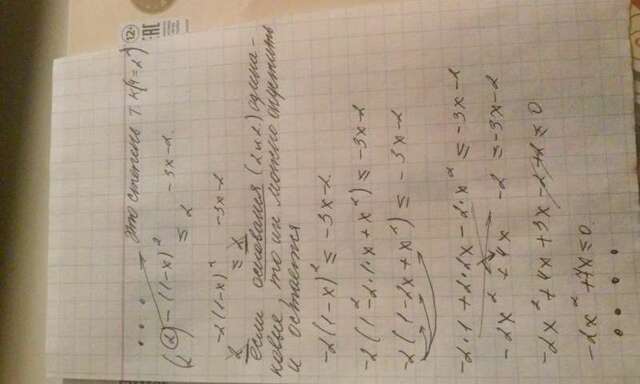 это степень т.к (4=2²)
12+
EAC
(2²)^-(1-x)² ≤ 2^-3x-2.
2^-2(1-x)² ≤ 2^-3x-2
если основания (2 и 2) одина-
ковые, то их можно опустить
и остается
-2(1-x)² ≤ -3x-2.
-2(1²-2·1·x+x²) ≤ -3x-2
-2(1-2x+x²) ≤ -3x-2
-2·1+2·2x-2·x² ≤ -3x-2
-2x²+4x-2 ≤ -3x-2
-2x²+4x+3x-2+2 ≤ 0
-2x²+7x ≤ 0.